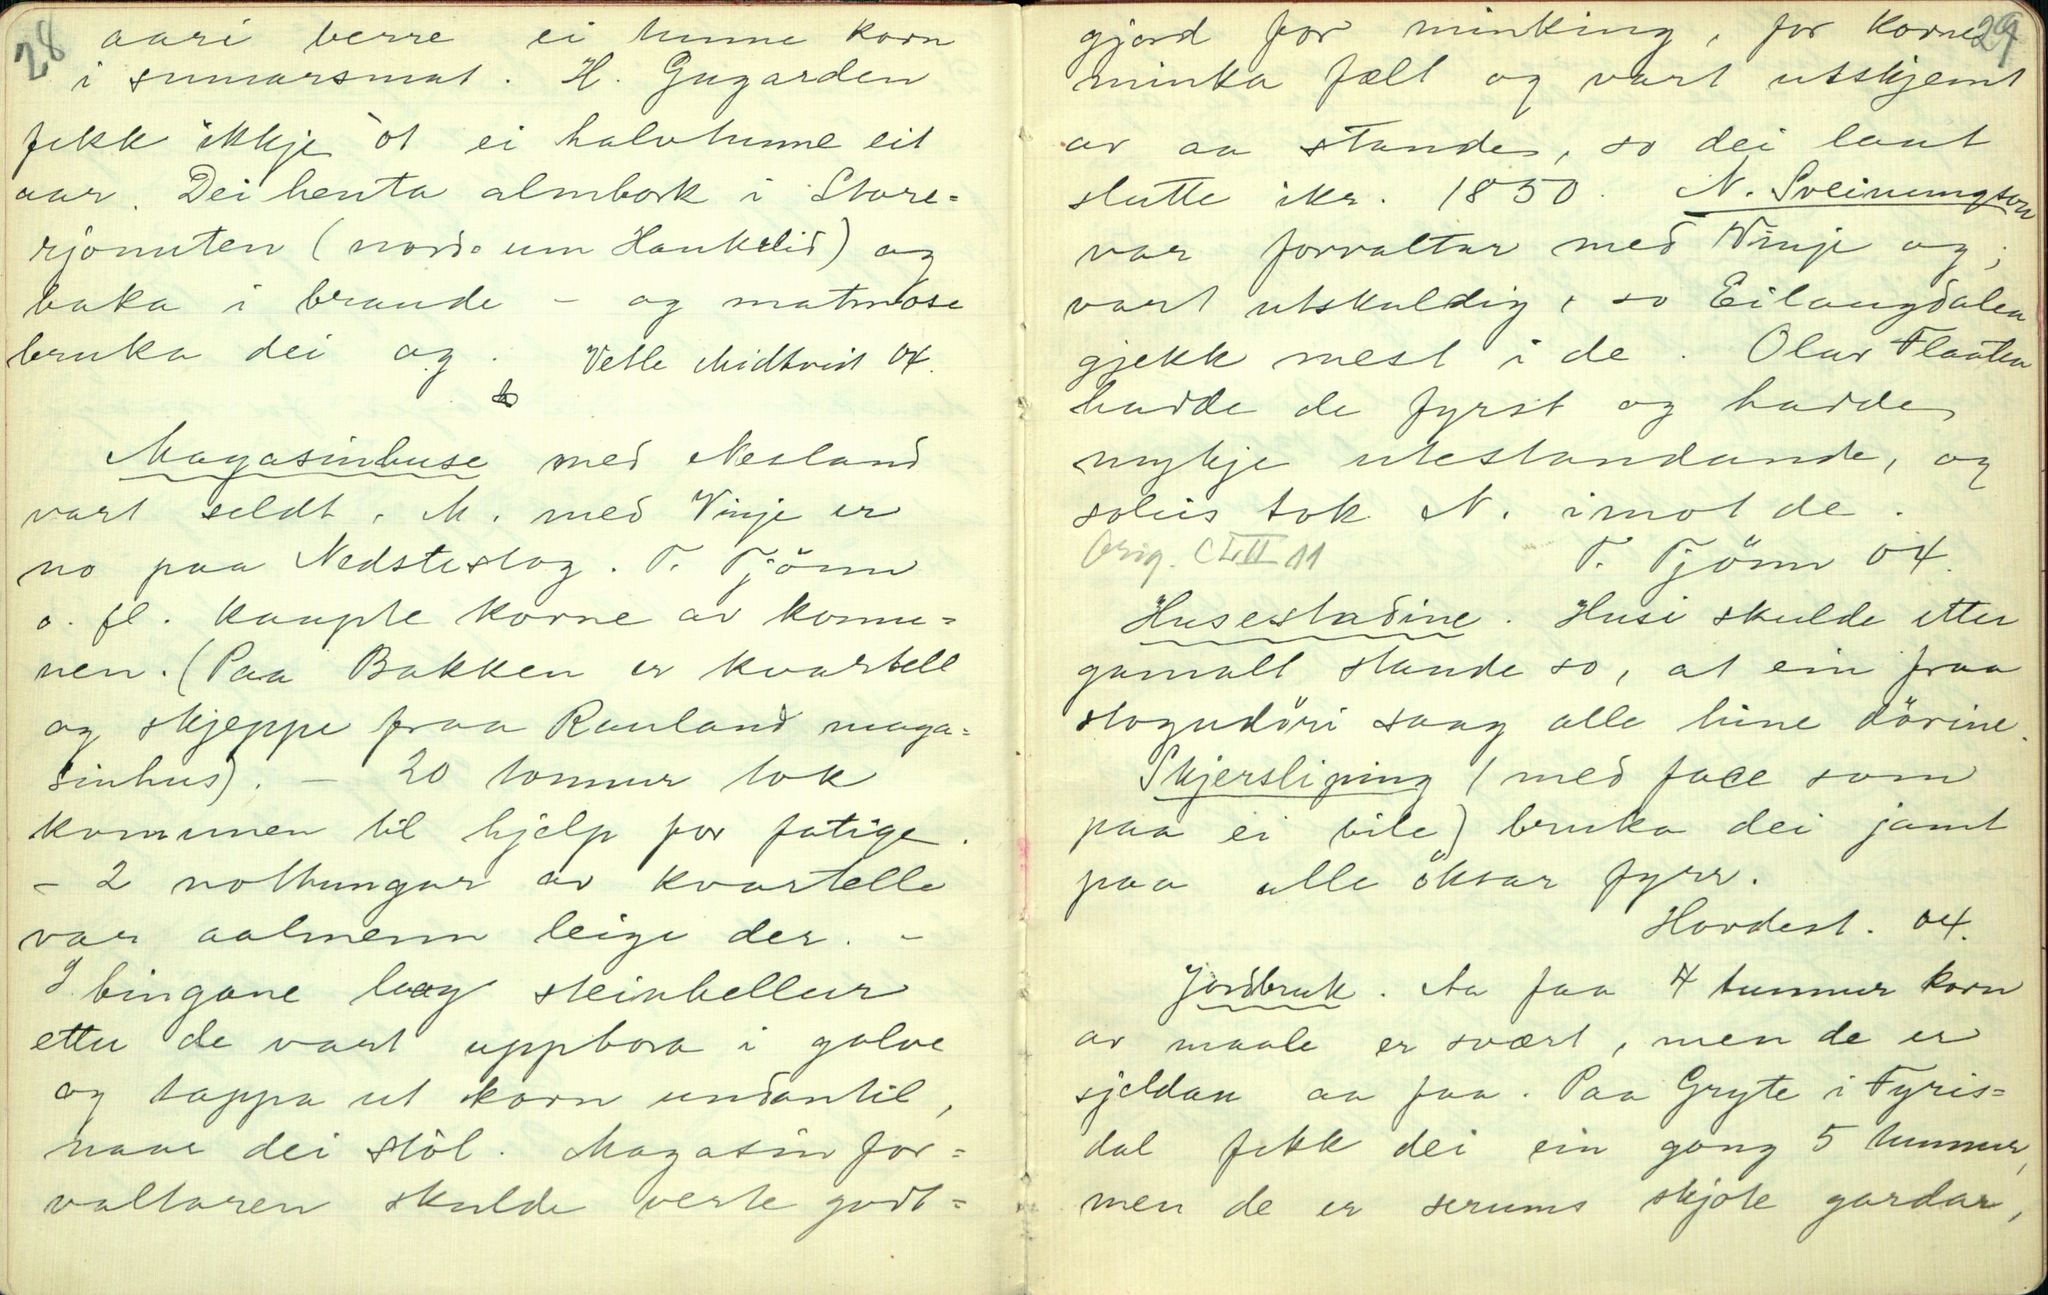 28
aari berre ei tunne korn
i sumarsmat. H. Gugarden
fekk ikkje ot ei halvtunne eit
aar. Dei henta almbork i Store-
rjonuten (nord. um Haukelid) og
baka i braude – og matmose
bruka dei og. Vetle Midtveit 04.
Magasinhuse med Nesland
vart seldt. M. med Vinje er
no paa Nedstestog. T. Tjönn
o. fl. kaupte korne av komu-
nen. (Paa Bakken er kvartell
og skjeppe fraa Rauland maga-
sinhus). – 20 tonnur tok
kommunen til hjelp for fatige.
– 2 nothungar av kvartelle
var aalmenn leige der. –
I bingane laag steinhellur
etter de vart uppbora i golve
og tappa ut korn undantil,
naar dei stòl. Magasinfor-
valtaren skulde verte godt-
29
gjord for minking, for korne
minka fælt og vart utskjemt
av aa stande, so dei laut
slutte ikr. 1850. N. Sveinungson
var forvaltar med Vinje og
vart utskuldig, so Eilaugdalen
gjekk mest i de. Olav Flaaten
hadde de fyrst og hadde
mykje utestandande, og
soleis tok N. imot de.
Orig. CLII 11 T. Tjönn 04.
Husestadine. Husi skulde etter
gamalt stande so, at ein fraa
stogudöri saag alle hine dörine.
Skjersliping (med face som
paa ei bile) bruka dei jamt
paa alle öksar fyrr.
Hovdest. 04.
Jordbruk. Aa faa 4 tunnur korn
av maale er svært, men de er
sjeldan aa faa. Paa Gryte i Fyris-
dal fekk dei ein gong 5 tunnur,
men de er serums skjote gardar,